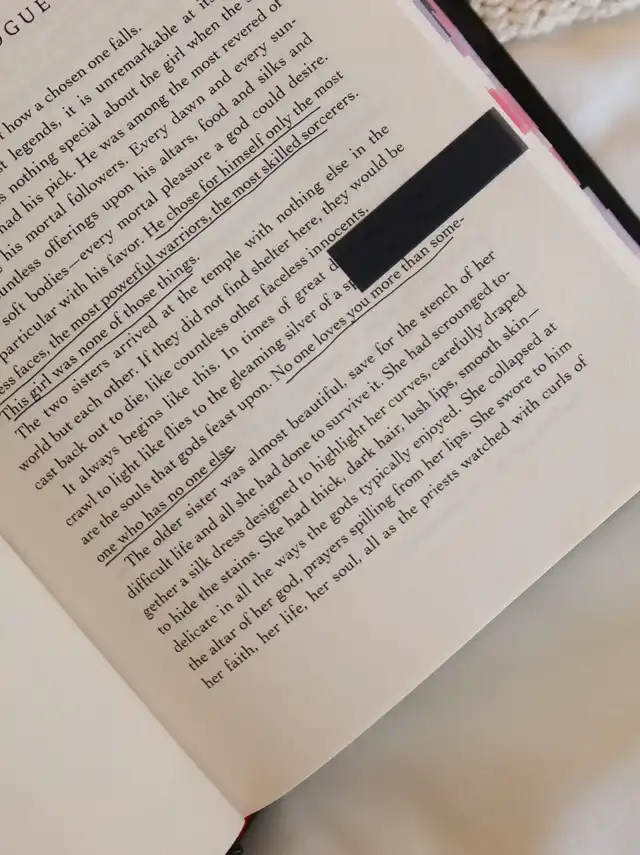 OGUE
how a chosen one falls.
legends, it is unremarkable at
nothing special about the girl when the
had his pick. He was among the most revered of
his mortal followers. Every dawn and every sun-
offerings upon his altars, food and silks and
soft bodies—every mortal pleasure a god could desire.
particular with his favor. He chose for himself only the most
faces, the most powerful warriors, the most skilled sorcerers.
This girl was none of those things.
The two sisters arrived at the temple with nothing else in the
world but each other. If they did not find shelter here, they would be
cast back out to die, like countless other faceless innocents.
It always begins like this. In times of great
crawl to light like flies to the gleaming silver of a
are the souls that gods feast upon. No one loves you more than some-
one who has no one else.
The older sister was almost beautiful, save for the stench of her
difficult life and all she had done to survive it. She had scrounged to-
gether a silk dress designed to highlight her curves, carefully draped
to hide the stains. She had thick, dark hair, lush lips, smooth skin—
delicate in all the ways the gods typically enjoyed. She collapsed at
the altar of her god, prayers spilling from her lips. She swore to him
her faith, her life, her soul, all as the priests watched with curls of